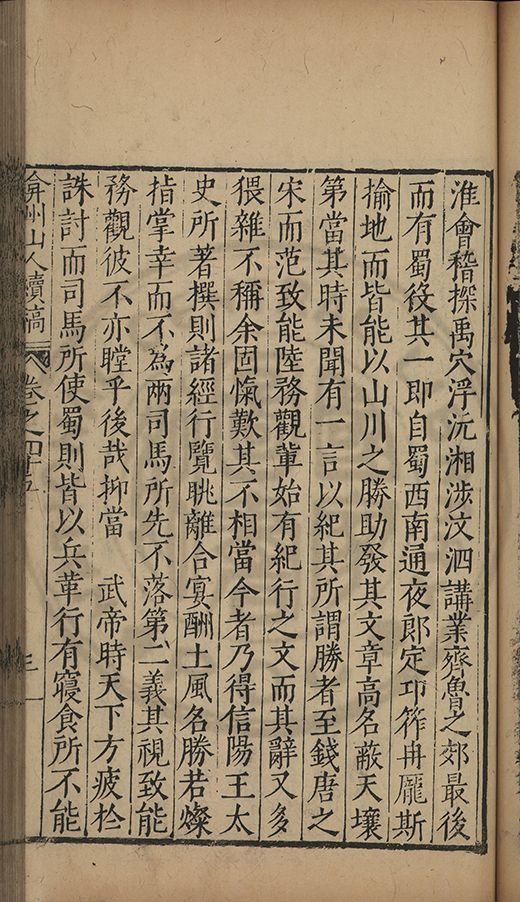 淮會稽探禹穴浮沅湘涉汶泗講業齊魯之郊最後
而有蜀役其一即自蜀西南通夜郎定卭筰冉龐斯
揄地而皆能以山川之勝助發其文章高名蔽天壤
第當其時未聞有一言以紀其所謂勝者至錢唐之
宋而范致能陸務觀輩始有紀行之文而其辭又多
猥雜不稱余固愾歎其不相當今者乃得信陽王太
史所著撰則諸經行覽眺離合寅酬土風名勝若燦
指掌幸而不為兩司馬所先不落第二義其視致能
務觀彼不亦瞠乎後哉抑當　武帝時天下方疲於
誅討而司馬所使蜀則皆以兵革行有寢食所不能
弇州山人續稿　卷之四十五